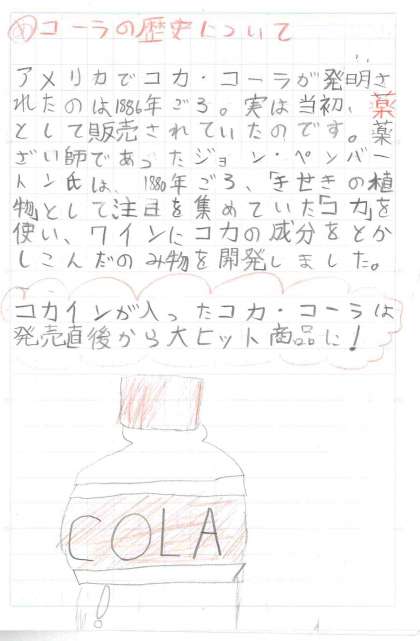 コーラの歴史について
アメリカでコカ・コーラが発明さ
れたのは1886年ごろ。実は当初、薬
として販売されていたのです。薬
ざい師であったジョン・ペンバー
トン氏は、1880年ごろ、「きせきの植
物」として注目を集めていた「コカ」を
使い、ワインにコカの成分をとか
しこんだのみ物を開発しました。
コカインが入ったコカ・コーラは
発売直後から大ヒット商品に!
COLA